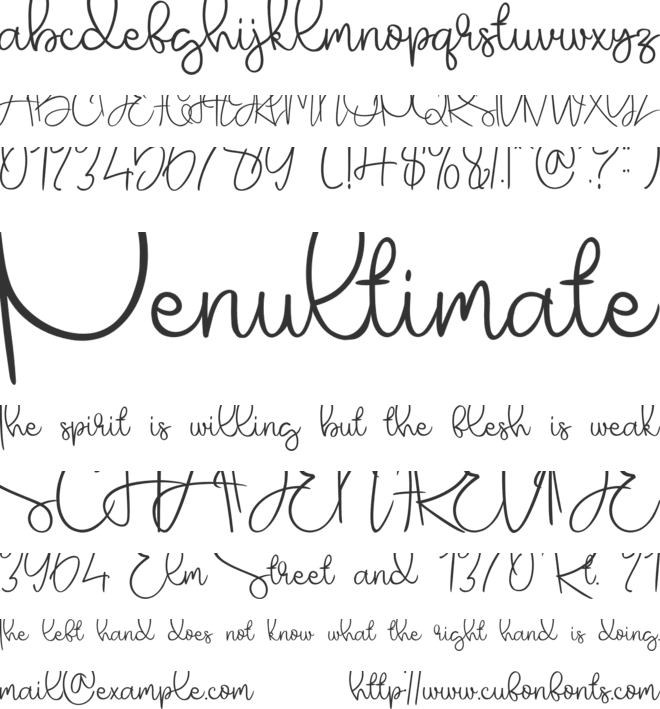 abcdefghijklmnopqrstuvwxyz
ABCDEFGHIJKLMNOPQRSTUVWXYZ
0123456789 (!#$%&/|\"@*?:)
Penultimate
The spirit is willing but the flesh is weak
SCHADENFREUDE
3964 Elm Street and 1370 Rt. 21
The left hand does not know what the right hand is doing.
mail@example.com http://www.cubonfonts.com